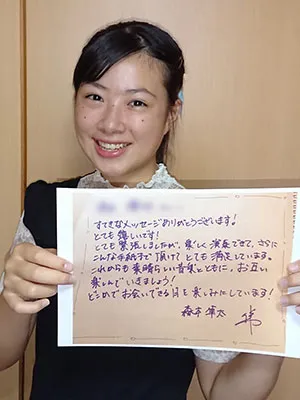 すてきなメッセージありがとうございます!
とても嬉しいです!
とても緊張しましたが、楽しく演奏できて、さらに
こんな手紙まで頂けてとても満足しています。
これからも素晴らしい音楽とともに、お互い
楽しんでいきましょう!
どこかでお会いできる日を楽しみにしています!
森本隼太